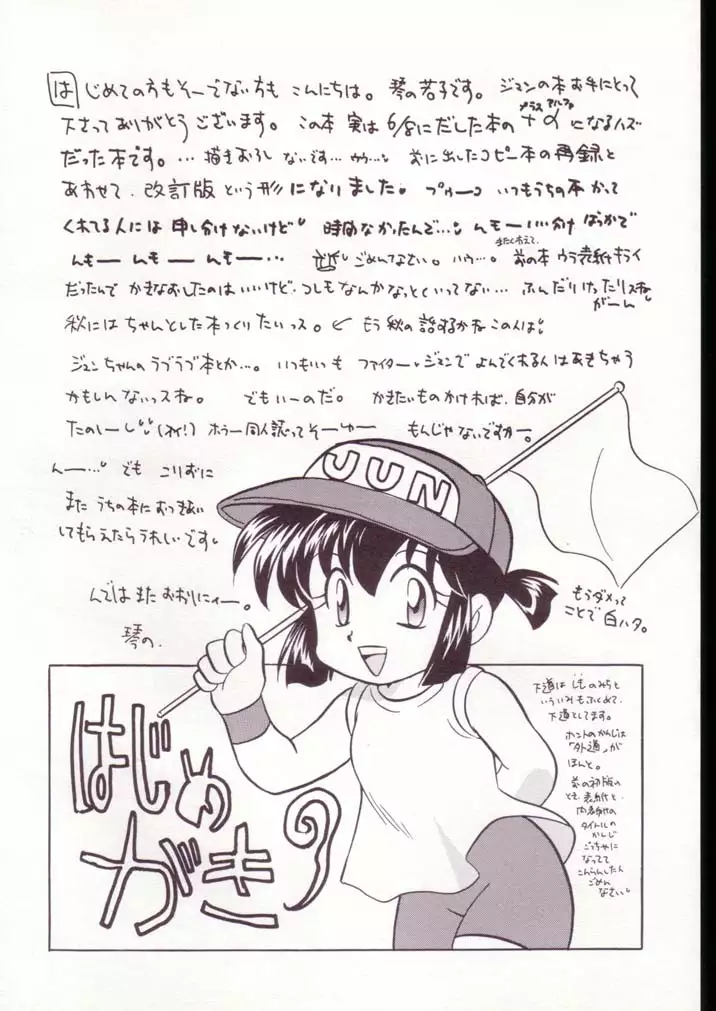 はじめての方もそーでない方も こんにちは。琴の若子です。ジュンの本お手にとって
下さってありがとうございます。この本 実は6/8にだした本の+α(プラスアルファ)になるハズ
だった本です。…描きおろし ないです…ウウ…。 前に出したコピー本の再録と
あわせて、改訂版 という形になりました。 いつもうちの本 かって
くれてる人には 申し分けないけど 時間なかったんで…。んもー いい分け ばっかで
んもー んもー んもー… ごめんなさい。ハウ…。 前の本 ウラ表紙 キライ
だったんで かきなおしたのはいいけど、コレもなんかなっとくいってない… ふんだりけったりスね
がーん
秋には ちゃんとした本つくりたいっス。← もう秋の話するかな この人は
ジュンちゃんのラブラブ本とか…。いつもいつも ファイター・ジュンで よんでくれる人はあきちゃう
かもしんないっスね。 でもいーのだ。 かきたいものかければ、自分が
たのしーし (オイ!) ホラー同人誌ってそーゆー もんじゃないですかー。
んー… でも こりずに
また うちの本におつきあい
してもらえたらうれしいです
んでは またおおにィー。
琴の.
JUN
もうダメって
ことで白ハタ。
はじめ
がき
下道は しものみちと
いういみもふくめて、
下道としてます。
ホントのかんじは
「外道」が
ほんと。
前の初版の
とき、表紙と、
内表紙の
タイトルの
かんじ
ごっちゃに
なってて
こんらんしたん
ごめん
なさい